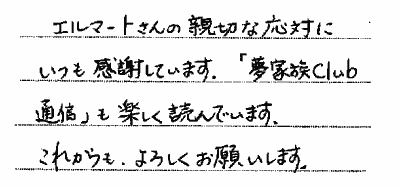 エルマートさんの親切な応対に
いつも感謝しています.「夢家族Club
通信」も楽しく読んでいます.
これからも.よろしくお願いします.